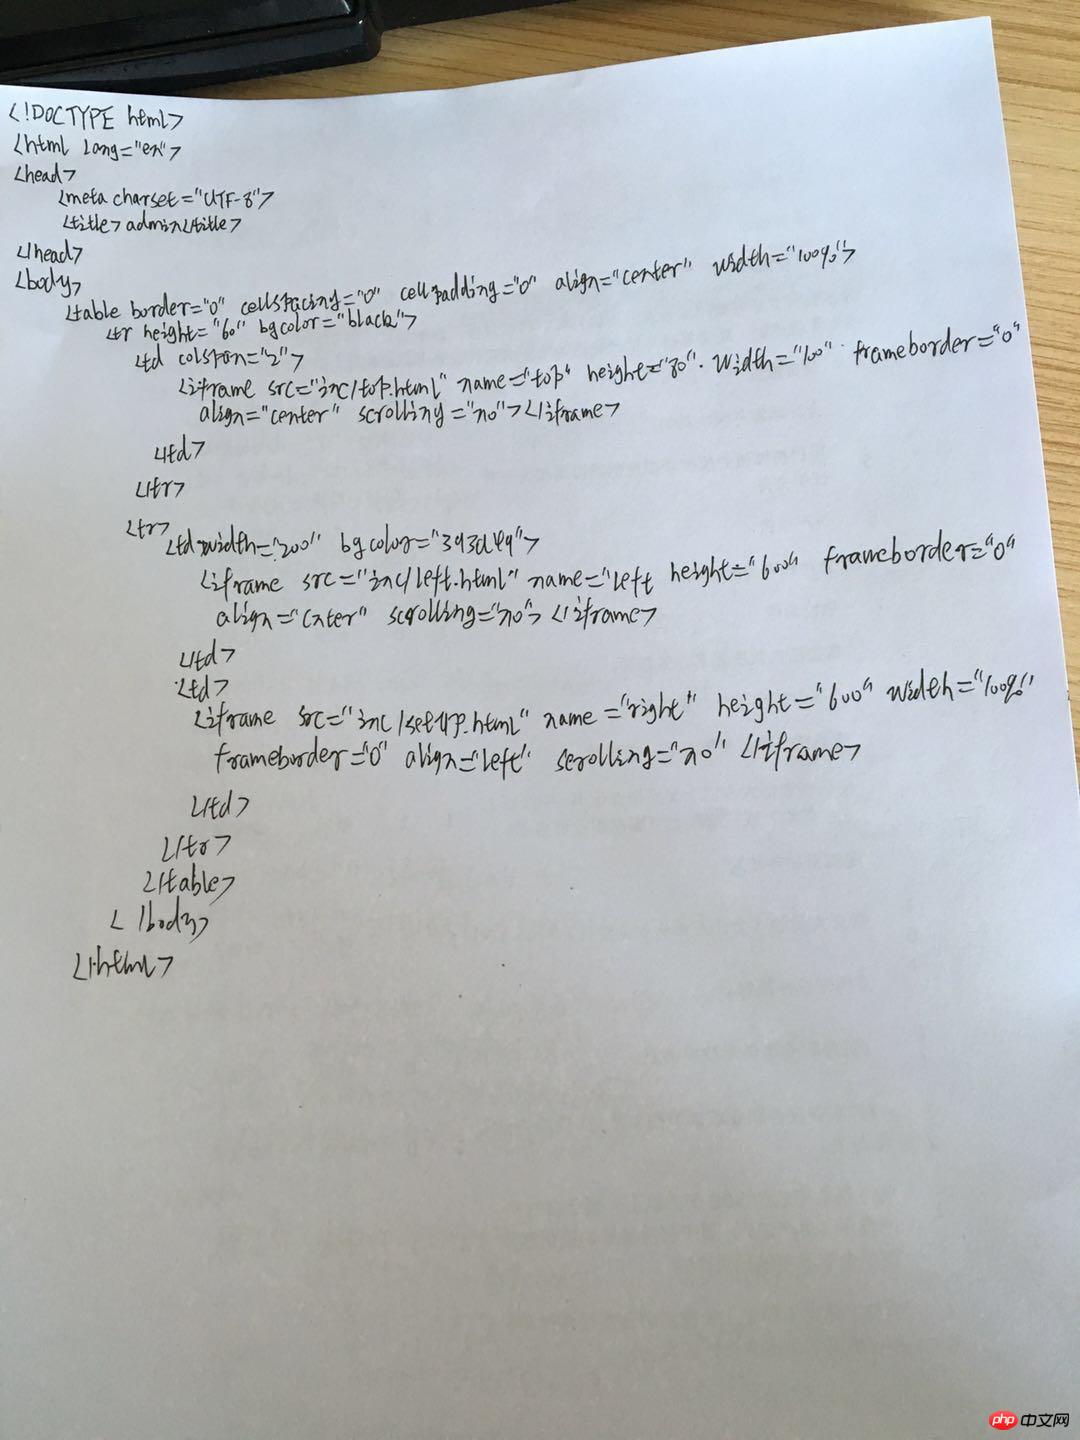 <!DOCTYPE html>
<html lang="en">
<head>
<meta charset="UTF-8">
<title>admin</title>
</head>
<body>
<table border="0" cellspacing="0" cellpadding="0" align="center" width="100%">
<tr height="60" bgcolor="black">
<td colspan="2">
<iframe src="inc/top.html" name="top" height="80" width="100" frameborder="0"
align="center" scrolling="no"></iframe>
</td>
</tr>
<tr>
<td width="200" bgcolor="393d49">
<iframe src="inc/left.html" name="left height="600" frameborder="0"
align="cnter" scrolling="no"></iframe>
</td>
<td>
<iframe src="inc/setup.html" name="right" height="600" width="100%"
frameborder="0" align="left" scrolling="no" </iframe>
</td>
</tr>
</table>
</body>
</html>
php 中文网